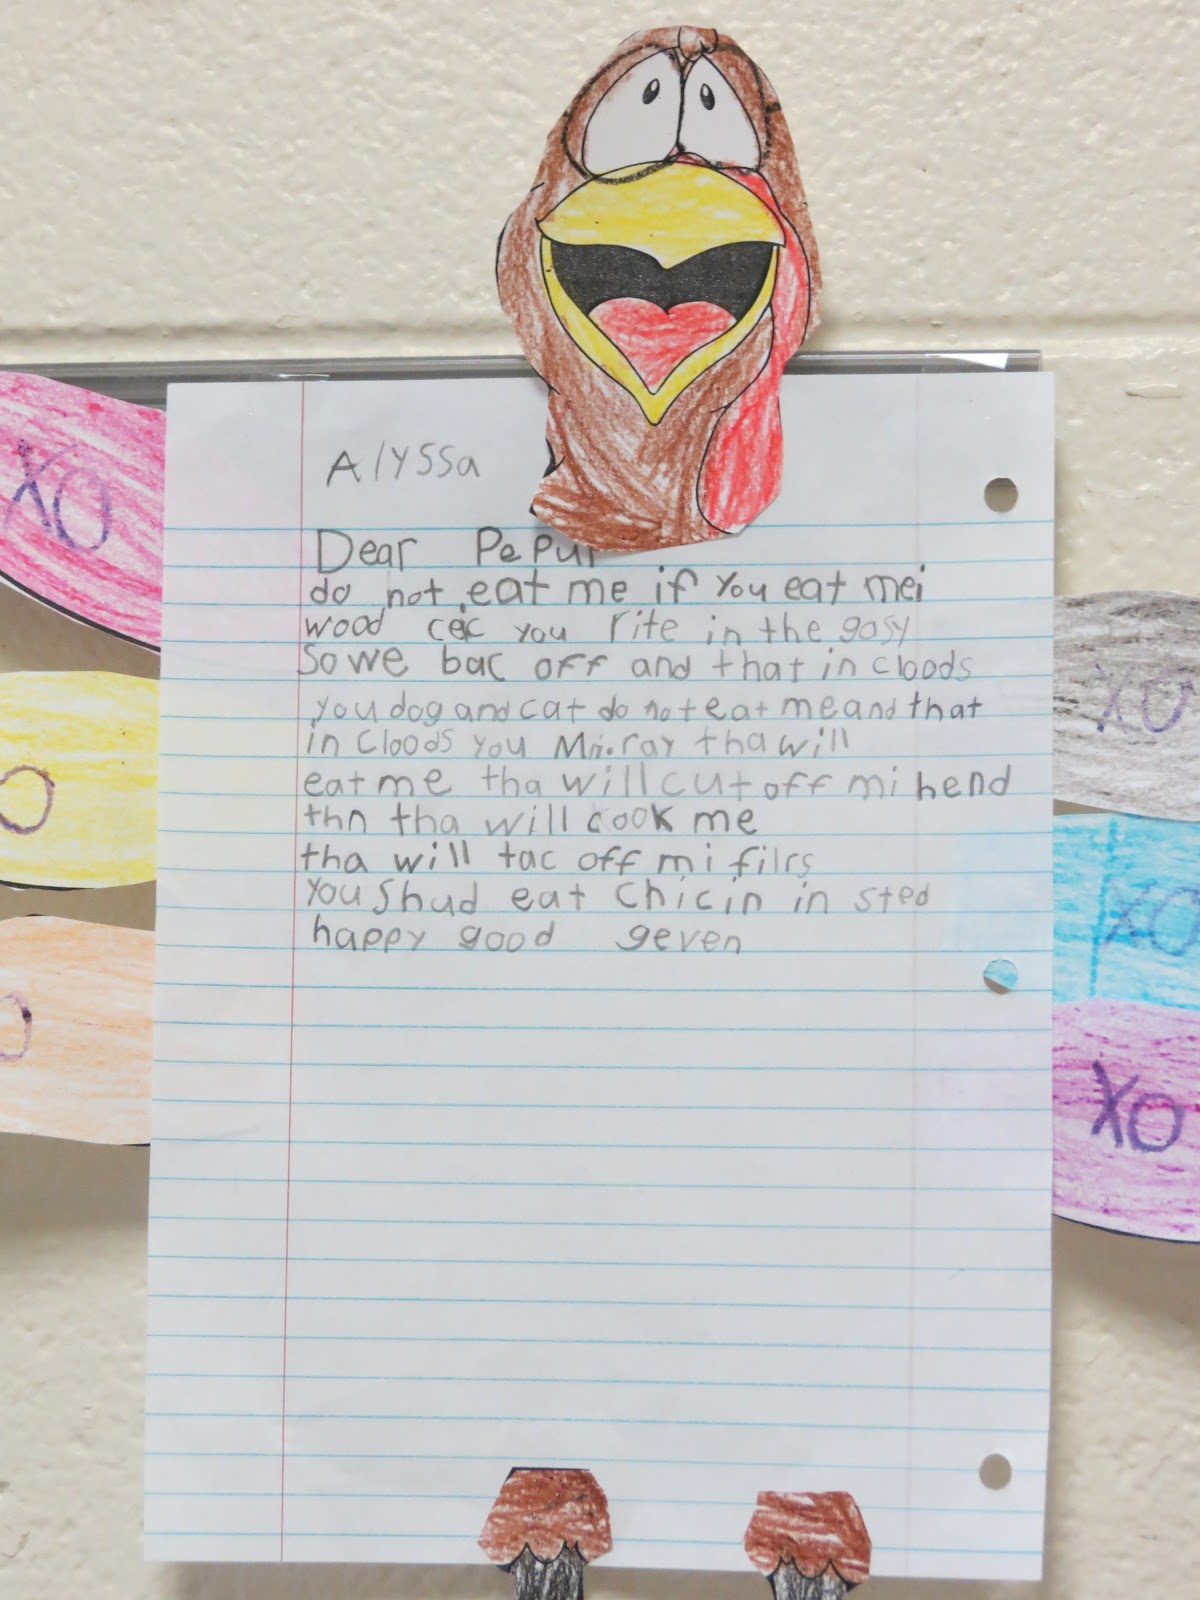 Alyssa
Dear Pepul
do not eat me if you eat mei
wood cec you rite in the gosy
So we bac off and that in cloods
you dog and cat do not eat me and that
in cloods you Mri.ray tha will
eat me tha will cut off mi hend
thn tha will cook me
tha will tac off mi filrs
you shud eat chicin in sted
happy good geven
XO
O
O
XO
XO
XO